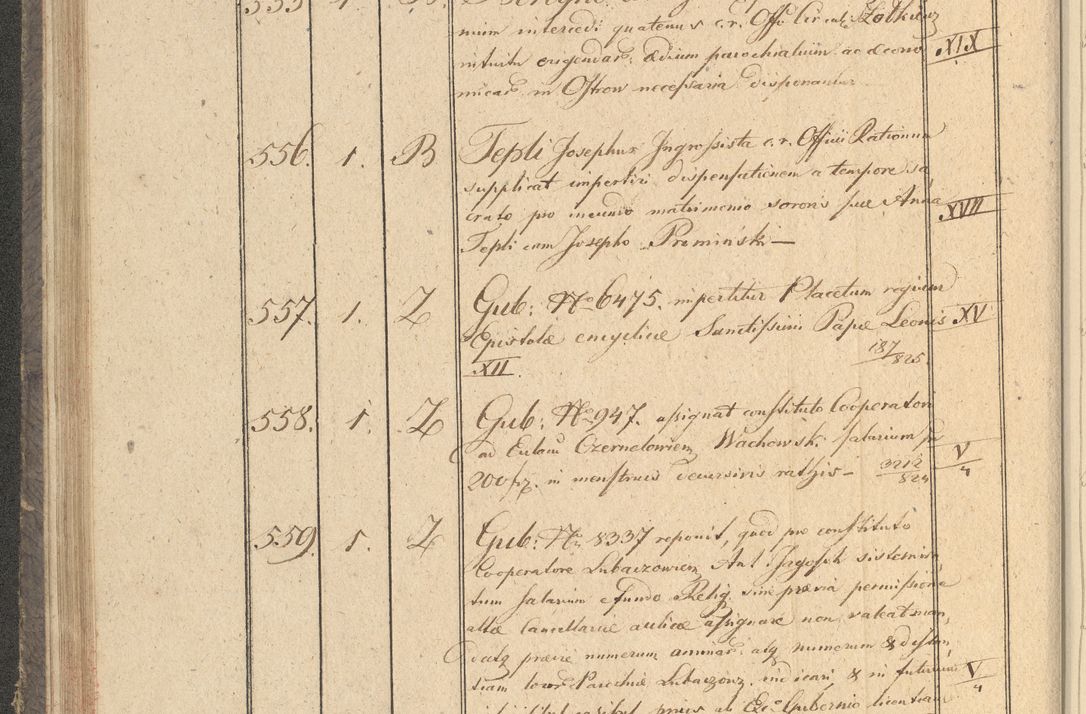 mium intercedi quatenus c. r. Offi Circul: Zolkiew
intuitu erigendar: Ædium parochialium ac œcono XIX
micar in Ostrow necessaria disponantur
556. 1. B Tepli Josephus Ingrossista c. r. Officii Rationum
supplicat impertiri dispensationem a tempore sa
crato pro ineundo matrimonio sororis suæ Anna XVII
Tepli cum Josepho Premiński —
557. 1. Z Gub: No 6475. impertitur Placetum regium
Epistolæ encyclicæ Sanctissimi Papæ Leonis XV
XII. 187/825.
558. 1. Z Gub: No 947. assignat constituto Cooperatori
ad Eccla Czernelowiem Wachowski salarium
200 fr. in menstruis decursivis rathis — 3212/824 V/4
559. 1. Z Gub: No 8337 reponit, quod pro constituto
Cooperatore Lubaczowiem Ant: sistemisa
tum Salarium e fundo Relig. sine prævia permissione
altæ Cancellariæ aulicæ assignare non valeat
prævie numerum animar: atq numerum & distan
tiam Parochiæ Lubaczow. indicari, & in futurum V/4
ab Exo Gubernio licentiam